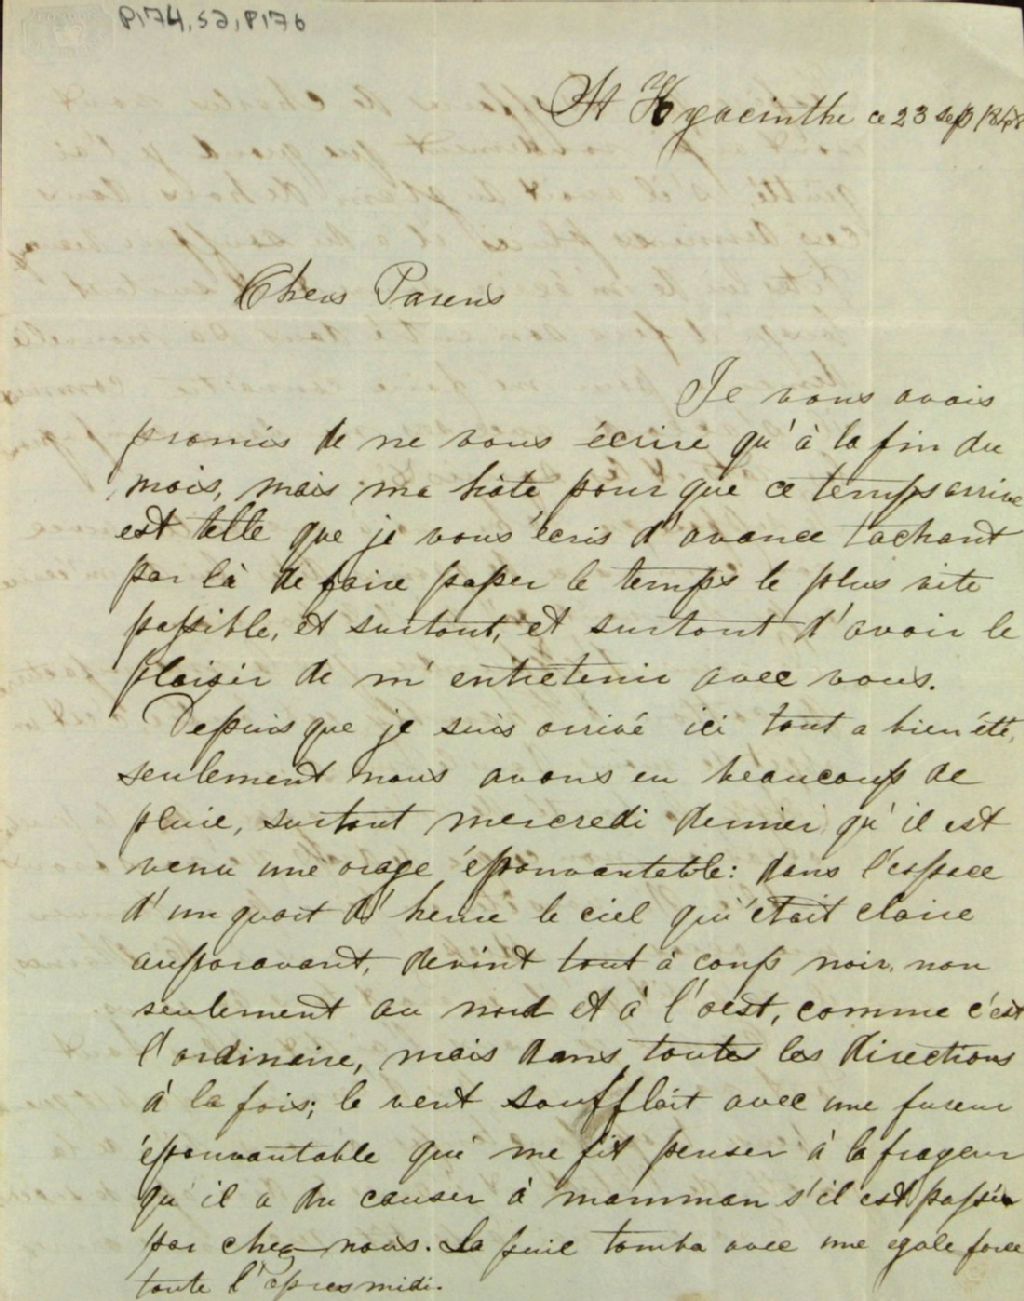 P174,S2,P176
St Hyacinthe ce 23 sep 1848
Chers Parens
Je vous avais
promis de ne vous écrire qu'à la fin du
mois, mais ma hâte pour que ce temps arrive
est telle que je vous écris d'avance tachant
par là de faire passer le temps le plus vite
possible, et surtout, et surtout d'avoir le
plaisir de m'entretenir avec vous.
Depuis que je suis arrivé ici tout a bien été,
seulement nous avons eu beaucoup de
pluie, surtout mercredi dernier qu'il est
venu une orage épouvantable: dans l'espace
d'un quart d'heure le ciel qui était claire
auparavant, devint tout à coup noir, non
seulement au nord et à l'oest, comme c'est
l'ordinaire, mais dans toutes les directions
à la fois; le vent soufflait avec une fureur
épouvantable qui me fit penser à la frayeur
qu'il a du causer à mamman s'il est passé
par chez nous. La pluie tomba avec une egale force
toute l'apres midi.